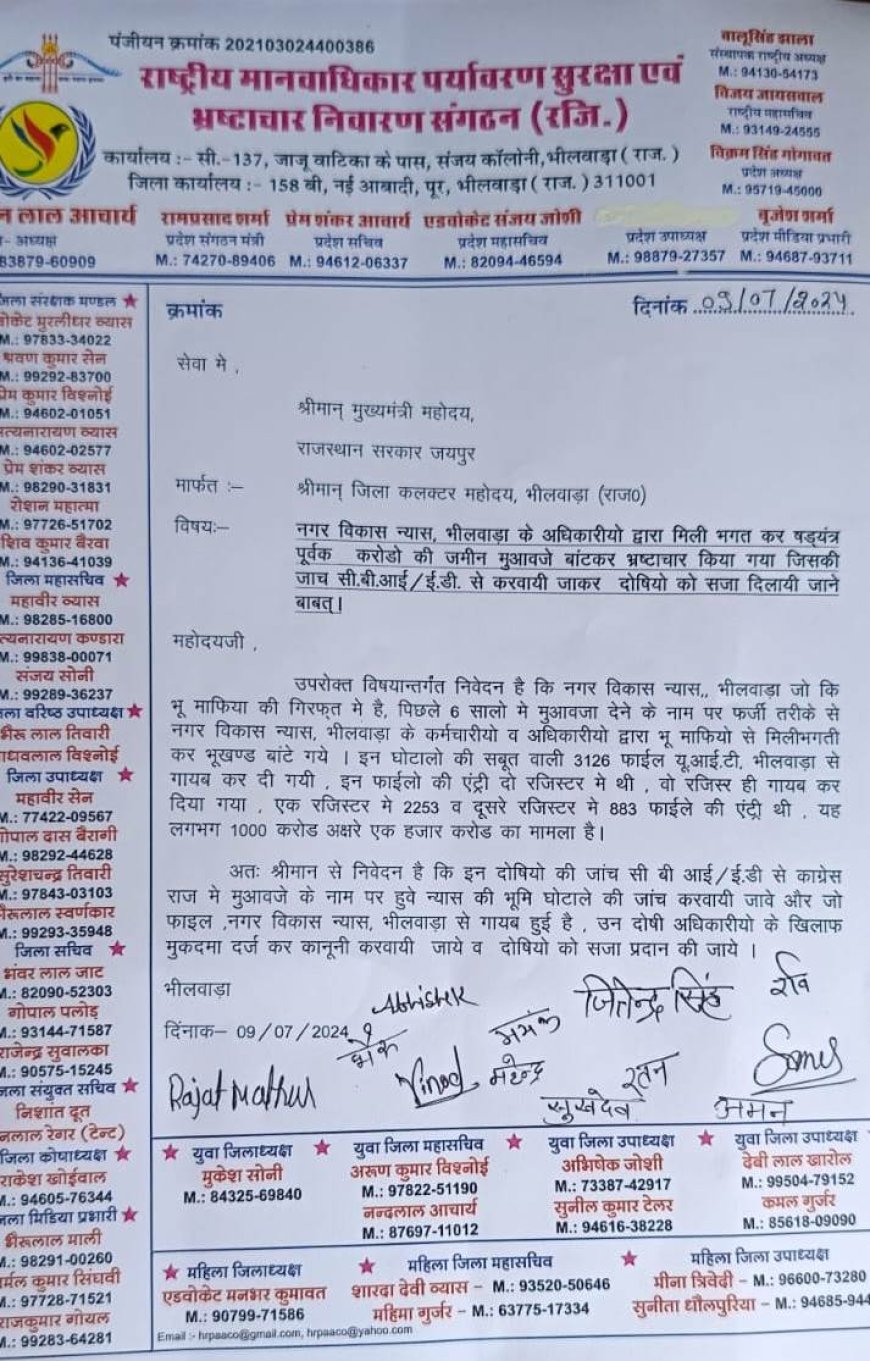 पंजीयन क्रमांक 202103024400386
राष्ट्रीय मानवाधिकार पर्यावरण सुरक्षा एवं
भ्रष्टाचार निवारण संगठन (रजि.)
कार्यालय :- सी.-137, जाजू वाटिका के पास, संजय कॉलोनी, भीलवाड़ा ( राज. )
जिला कार्यालय :- 158 बी, नई आबादी, पूर, भीलवाड़ा ( राज. ) 311001
बालूसिंह झाला
संस्थापक राष्ट्रीय अध्यक्ष
M.: 94130-54173
विजय जायसवाल
राष्ट्रीय महासचिव
M.: 93149-24555
विक्रम सिंह गोगावत
प्रदेश अध्यक्ष
M.: 95719-45000
न लाल आचार्य
- अध्यक्ष
83879-60909
रामप्रसाद शर्मा
प्रदेश संगठन मंत्री
M.: 74270-89406
प्रेम शंकर आचार्य
प्रदेश सचिव
M.: 94612-06337
एडवोकेट संजय जोशी
प्रदेश महासचिव
M.: 82094-46594
प्रदेश उपाध्यक्ष
M.: 98879-27357
बृजेश शर्मा
प्रदेश मीडिया प्रभारी
M.: 94687-93711
जिला संरक्षक मण्डल
वोकेट मुरलीधर व्यास
M.: 97833-34022
श्रवण कुमार सेन
M.: 99292-83700
प्रेम कुमार विश्नोई
M.: 94602-01051
त्यनारायण व्यास
M.: 94602-02577
प्रेम शंकर व्यास
M.: 98290-31831
रोशन महात्मा
M.: 97726-51702
शिव कुमार बैरवा
M.: 94136-41039
जिला महासचिव
महावीर व्यास
M.: 98285-16800
त्यनारायण कण्डारा
M.: 99838-00071
संजय सोनी
M.: 99289-36237
ला वरिष्ठ उपाध्यक्ष
भैरू लाल तिवारी
ाधवलाल विश्नोई
जिला उपाध्यक्ष
महावीर सेन
M.: 77422-09567
गोपाल दास बैरागी
M.: 98292-44628
सुरेशचन्द्र तिवारी
M.: 97843-03103
भैरूलाल स्वर्णकार
M.: 99293-35948
जिला सचिव
भंवर लाल जाट
M.: 82090-52303
गोपाल पलोड़
M.: 93144-71587
राजेन्द्र सुवालका
M.: 90575-15245
ला संयुक्त सचिव
निशांत दूत
नलाल रेगर (टेन्ट)
जिला कोषाध्यक्ष
राकेश खोईवाल
M.: 94605-76344
ला मिडिया प्रभारी
भैरूलाल माली
M.: 98291-00260
र्मल कुमार सिंघवी
M.: 97728-71521
राजकुमार गोयल
M.: 99283-64281
क्रमांक
दिनांक 09/07/2024
सेवा मे ,
श्रीमान् मुख्यमंत्री महोदय,
राजस्थान सरकार जयपुर
मार्फत :–
श्रीमान् जिला कलक्टर महोदय, भीलवाड़ा (राज0)
विषय:–
नगर विकास न्यास, भीलवाड़ा के अधिकारीयो द्वारा मिली भगत कर षड्यंत्र
पूर्वक करोडो की जमीन मुआवजे बांटकर भ्रष्टाचार किया गया जिसकी
जाच सी.बी.आई/ई.डी. से करवायी जाकर दोषियो को सजा दिलायी जाने
बाबत्।
महोदयजी ,
उपरोक्त विषयान्तर्गत निवेदन है कि नगर विकास न्यास,, भीलवाड़ा जो कि
भू माफिया की गिरफ्त मे है, पिछले 6 सालो मे मुआवजा देने के नाम पर फर्जी तरीके से
नगर विकास न्यास, भीलवाड़ा के कर्मचारीयो व अधिकारीयो द्वारा भू माफियो से मिलीभगती
कर भूखण्ड बांटे गये । इन घोटालो की सबूत वाली 3126 फाईल यू.आई.टी, भीलवाड़ा से
गायब कर दी गयी , इन फाईलो की एंट्री दो रजिस्टर मे थी , वो रजिस्र ही गायब कर
दिया गया , एक रजिस्टर मे 2253 व दूसरे रजिस्टर मे 883 फाईले की एंट्री थी , यह
लगभग 1000 करोड अक्षरे एक हजार करोड का मामला है।
अतः श्रीमान से निवेदन है कि इन दोषियो की जांच सी बी आई/ई.डी से काग्रेस
राज मे मुआवजे के नाम पर हुवे न्यास की भूमि घोटाले की जांच करवायी जावे और जो
फाइल ,नगर विकास न्यास, भीलवाड़ा से गायब हुई है , उन दोषी अधिकारीयो के खिलाफ
मुकदमा दर्ज कर कानूनी करवायी जाये व दोषियो को सजा प्रदान की जाये ।
भीलवाड़ा
दिनांक– 09/07/2024
Abhishek
जितेन्द्र सिंह
Rajat Mathur
Vinod
महेन्द्र
रतन
सुखदेव
अमन
युवा जिलाध्यक्ष
मुकेश सोनी
M.: 84325-69840
युवा जिला महासचिव
अरूण कुमार विश्नोई
M.: 97822-51190
नन्दलाल आचार्य
M.: 87697-11012
युवा जिला उपाध्यक्ष
अभिषेक जोशी
M.: 73387-42917
सुनील कुमार टेलर
M.: 94616-38228
युवा जिला उपाध्यक्ष
देवी लाल खारोल
M.: 99504-79152
कमल गुर्जर
M.: 85618-09090
महिला जिलाध्यक्ष
एडवोकेट मनभर कुमावत
M.: 90799-71586
महिला जिला महासचिव
शारदा देवी व्यास – M.: 93520-50646
महिमा गुर्जर – M.: 63775-17334
महिला जिला उपाध्यक्ष
मीना त्रिवेदी – M.: 96600-73280
सुनीता धौलपुरिया – M.: 94685-944
Email :- hrpaaco@gmail.com, hrpaaco@yahoo.com